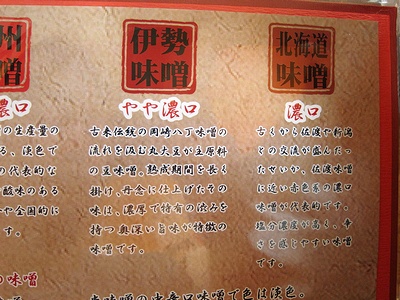 州
味噌
濃口
の生産量の
る、淡色で
の代表的な
酸味のある
や全国的に
す。
の味噌
伊勢
味噌
やや濃口
古来伝統の岡崎八丁味噌の
流れを汲む丸大豆が主原料
の豆味噌。熟成期間を長く
掛け、丹念に仕上げたその
味は、濃厚で特有の渋みを
持つ奥深い旨味が特徴の
味噌です。
北海道
味噌
濃口
古くから佐渡や新潟
との交流が盛んだっ
たせいか、佐渡味噌
に近い赤色系の濃口
味噌が代表的です。
塩分濃度が高く、辛
さを感じやすい味噌
です。
味の中辛口味噌で色は淡色。